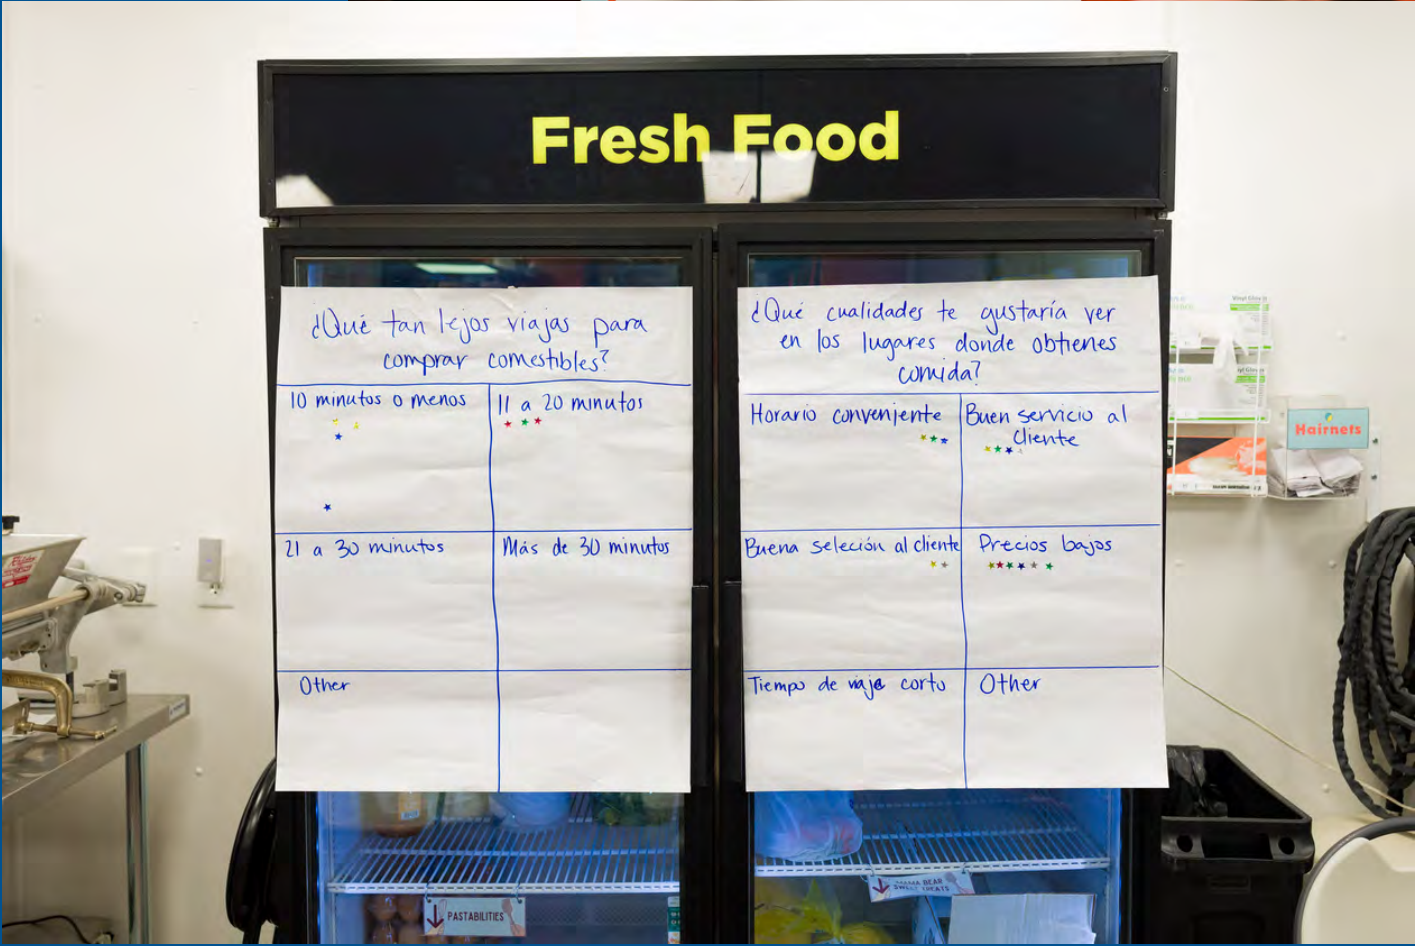 Fresh Food
¿Qué tan lejos viajas para
comprar comestibles?
10 minutos o menos
11 a 20 minutos
21 a 30 minutos
Más de 30 minutos
Other
¿Qué cualidades te gustaría ver
en los lugares donde obtienes
comida?
Horario conveniente
Buen servicio al
cliente
Buena seleción al cliente
Precios bajos
Tiempo de viaje corto
Other
Hairnets
PASTABILITIES
MAMA BEAR
SWEET TREATS